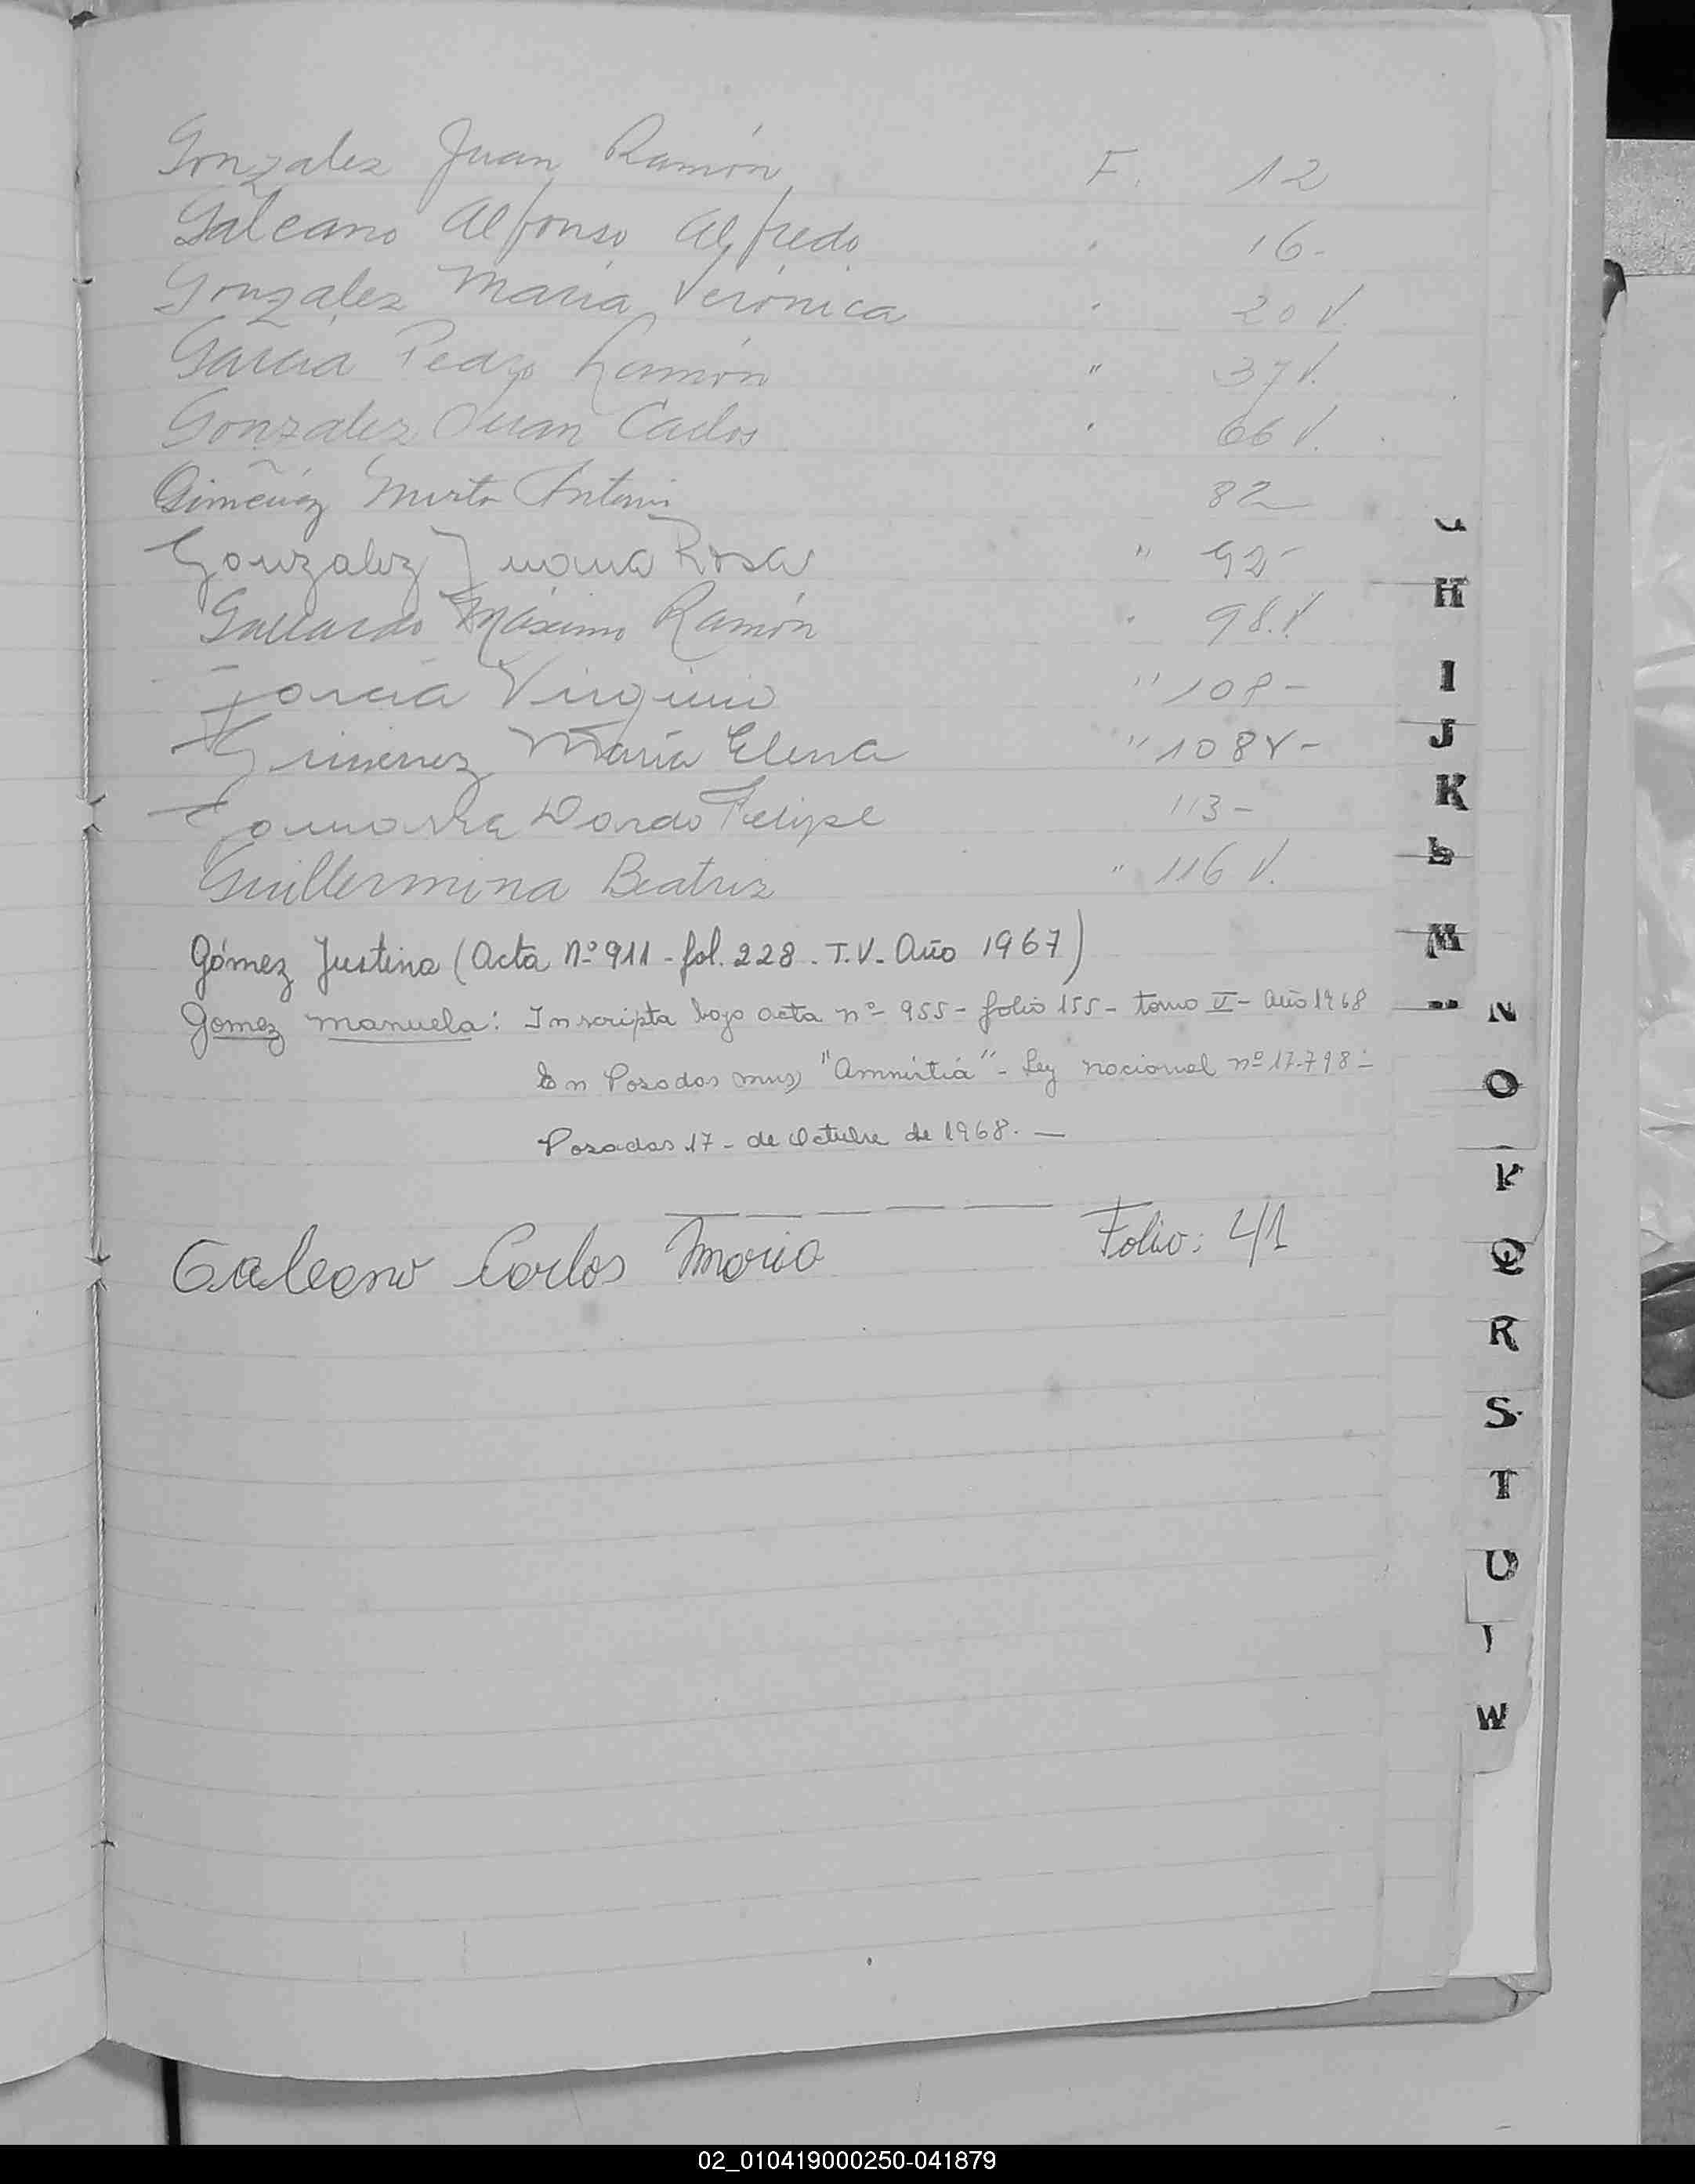 Gonzalez Juan Ramón F. 12
Galeano Alfonso Alfredo " 16-
Gonzalez María Verónica " 20 V.
Garcia Pedro Ramón " 37 V.
Gonzalez Juan Carlos " 66 V.
Gimenez Mirta Antoni 82
Gonzalez Juana Rosa " 92-
Gallardo Máximo Ramón " 98.V
Garcia Virginio " 108-
Gimenez María Elena " 108V-
Gamarra Dardo Felipe 113-
Guillermina Beatriz " 116 V.
Gómez Justina (Acta Nº 911 - fol. 228. T.V. Año 1967)
Gomez Manuela: Inscripta bajo acta nº 955 - folio 155 - tomo V - año 1968
En Posadas mns) "Amnistiá" - Ley nacional nº 17.798-
Posadas 17 - de Octubre de 1968. —
Galeano Carlos Mario Folio: 41
H
I
J
K
L
M
N
O
P
Q
R
S
T
U
W
02_010419000250-041879